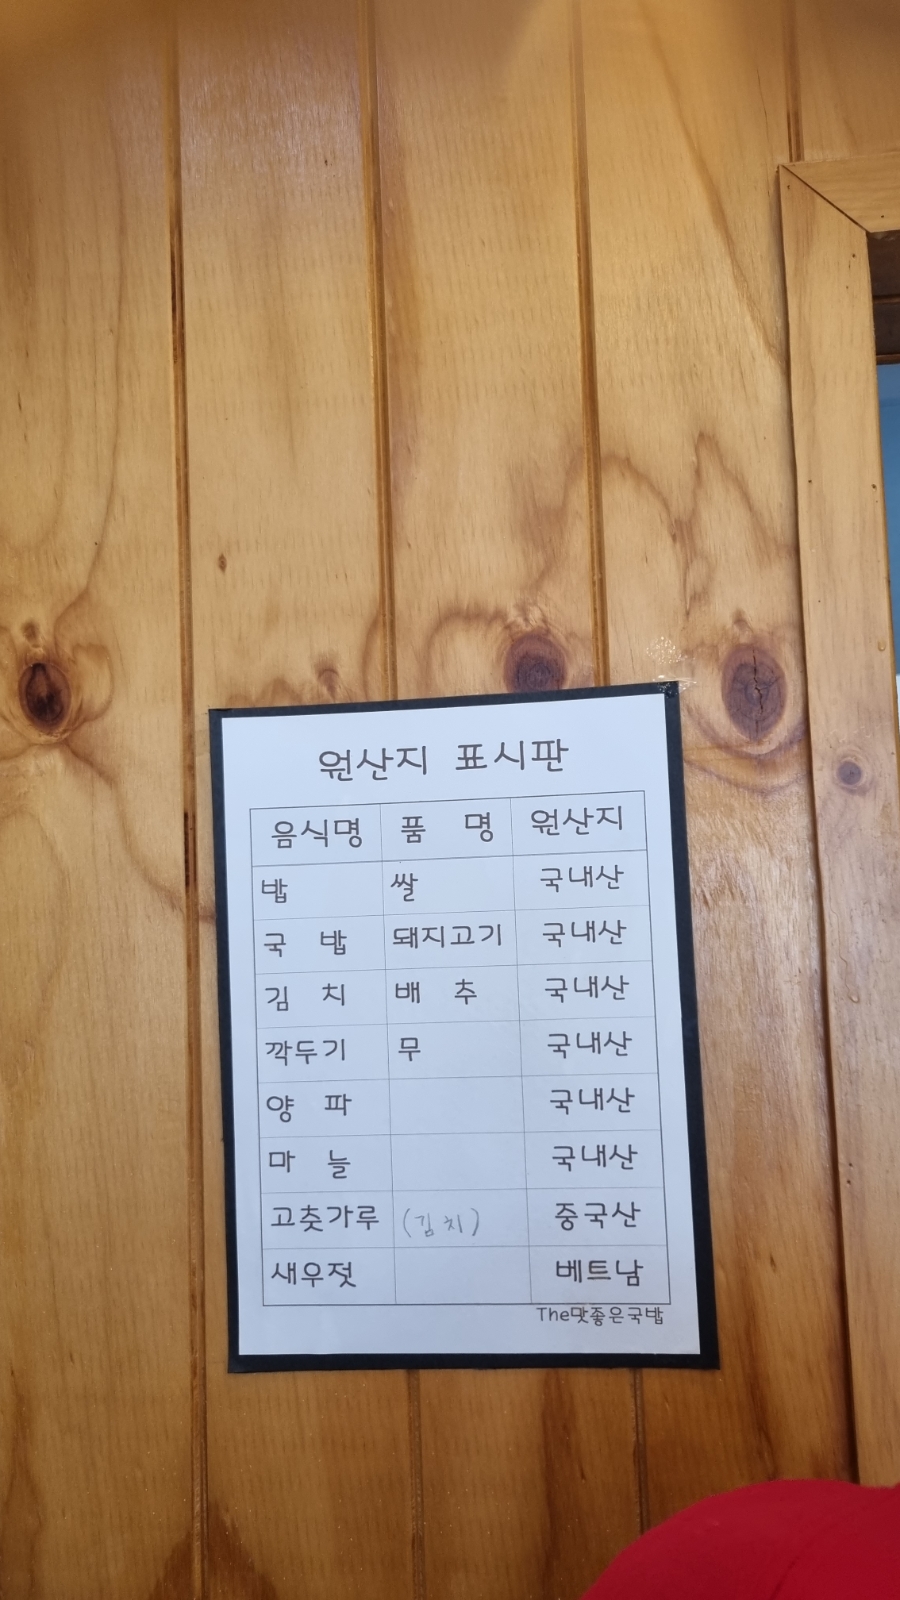 원산지 표시판
음식명 품 명 원산지
밥 쌀 국내산
국 밥 돼지고기 국내산
김 치 배 추 국내산
깍두기 무 국내산
양 파 국내산
마 늘 국내산
고춧가루 (김치) 중국산
새우젓 베트남
The맛좋은국밥